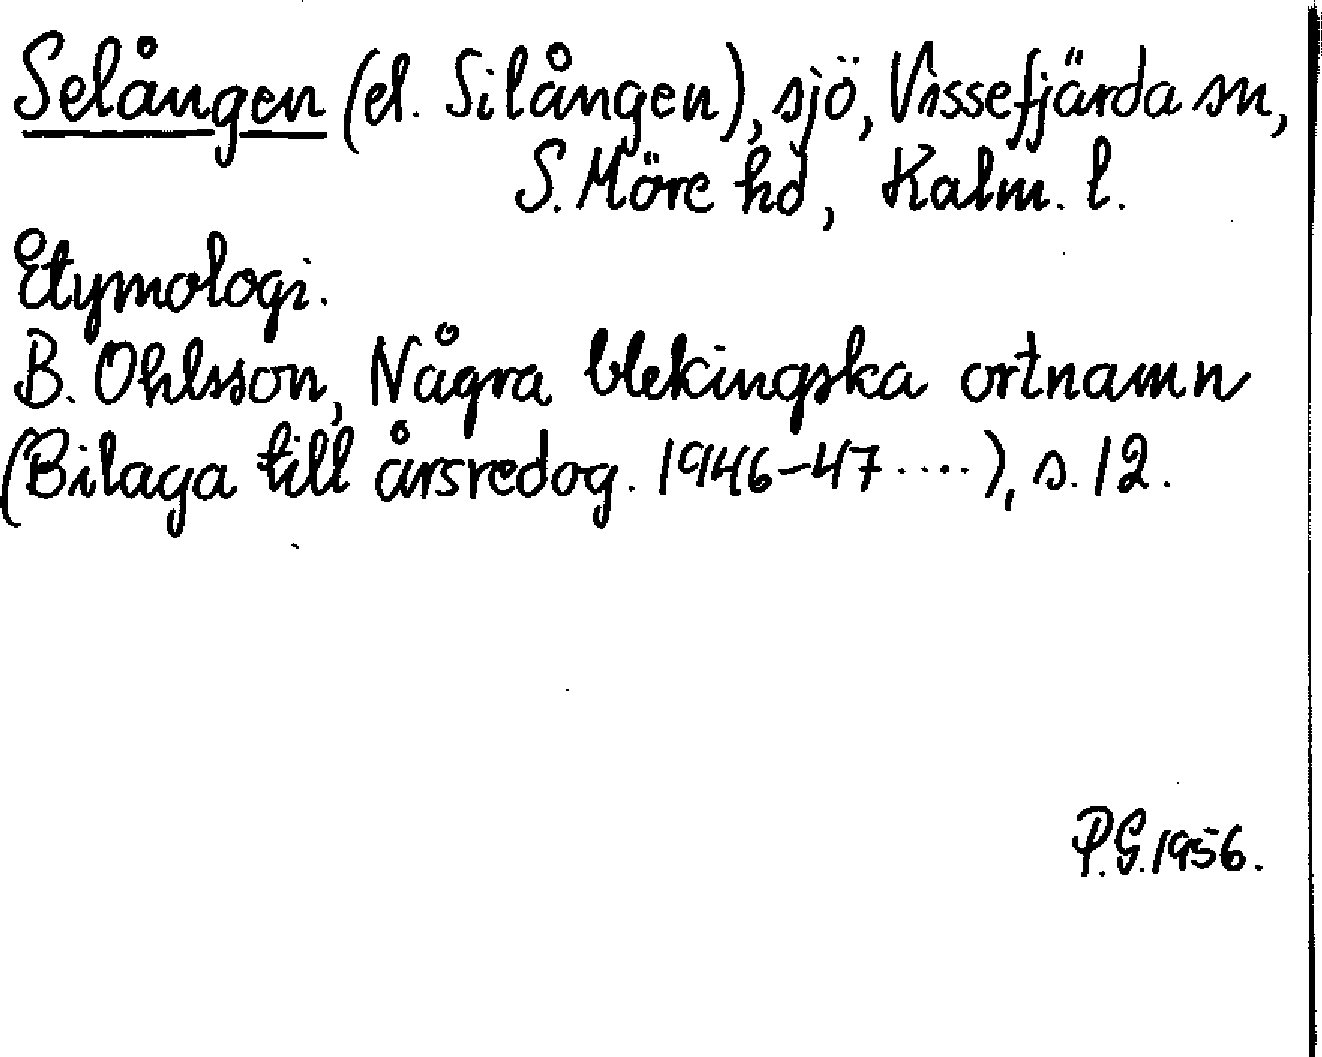 Selången (el. Silången), sjö, Vissefjärda sn,
S. Möre hd, Kalm. l.
Etymologi.
B. Ohlsson, Några blekingska ortnamn
(Bilaga till årsredog. 1946–47 ....), s. 12.
P.G. 1956.